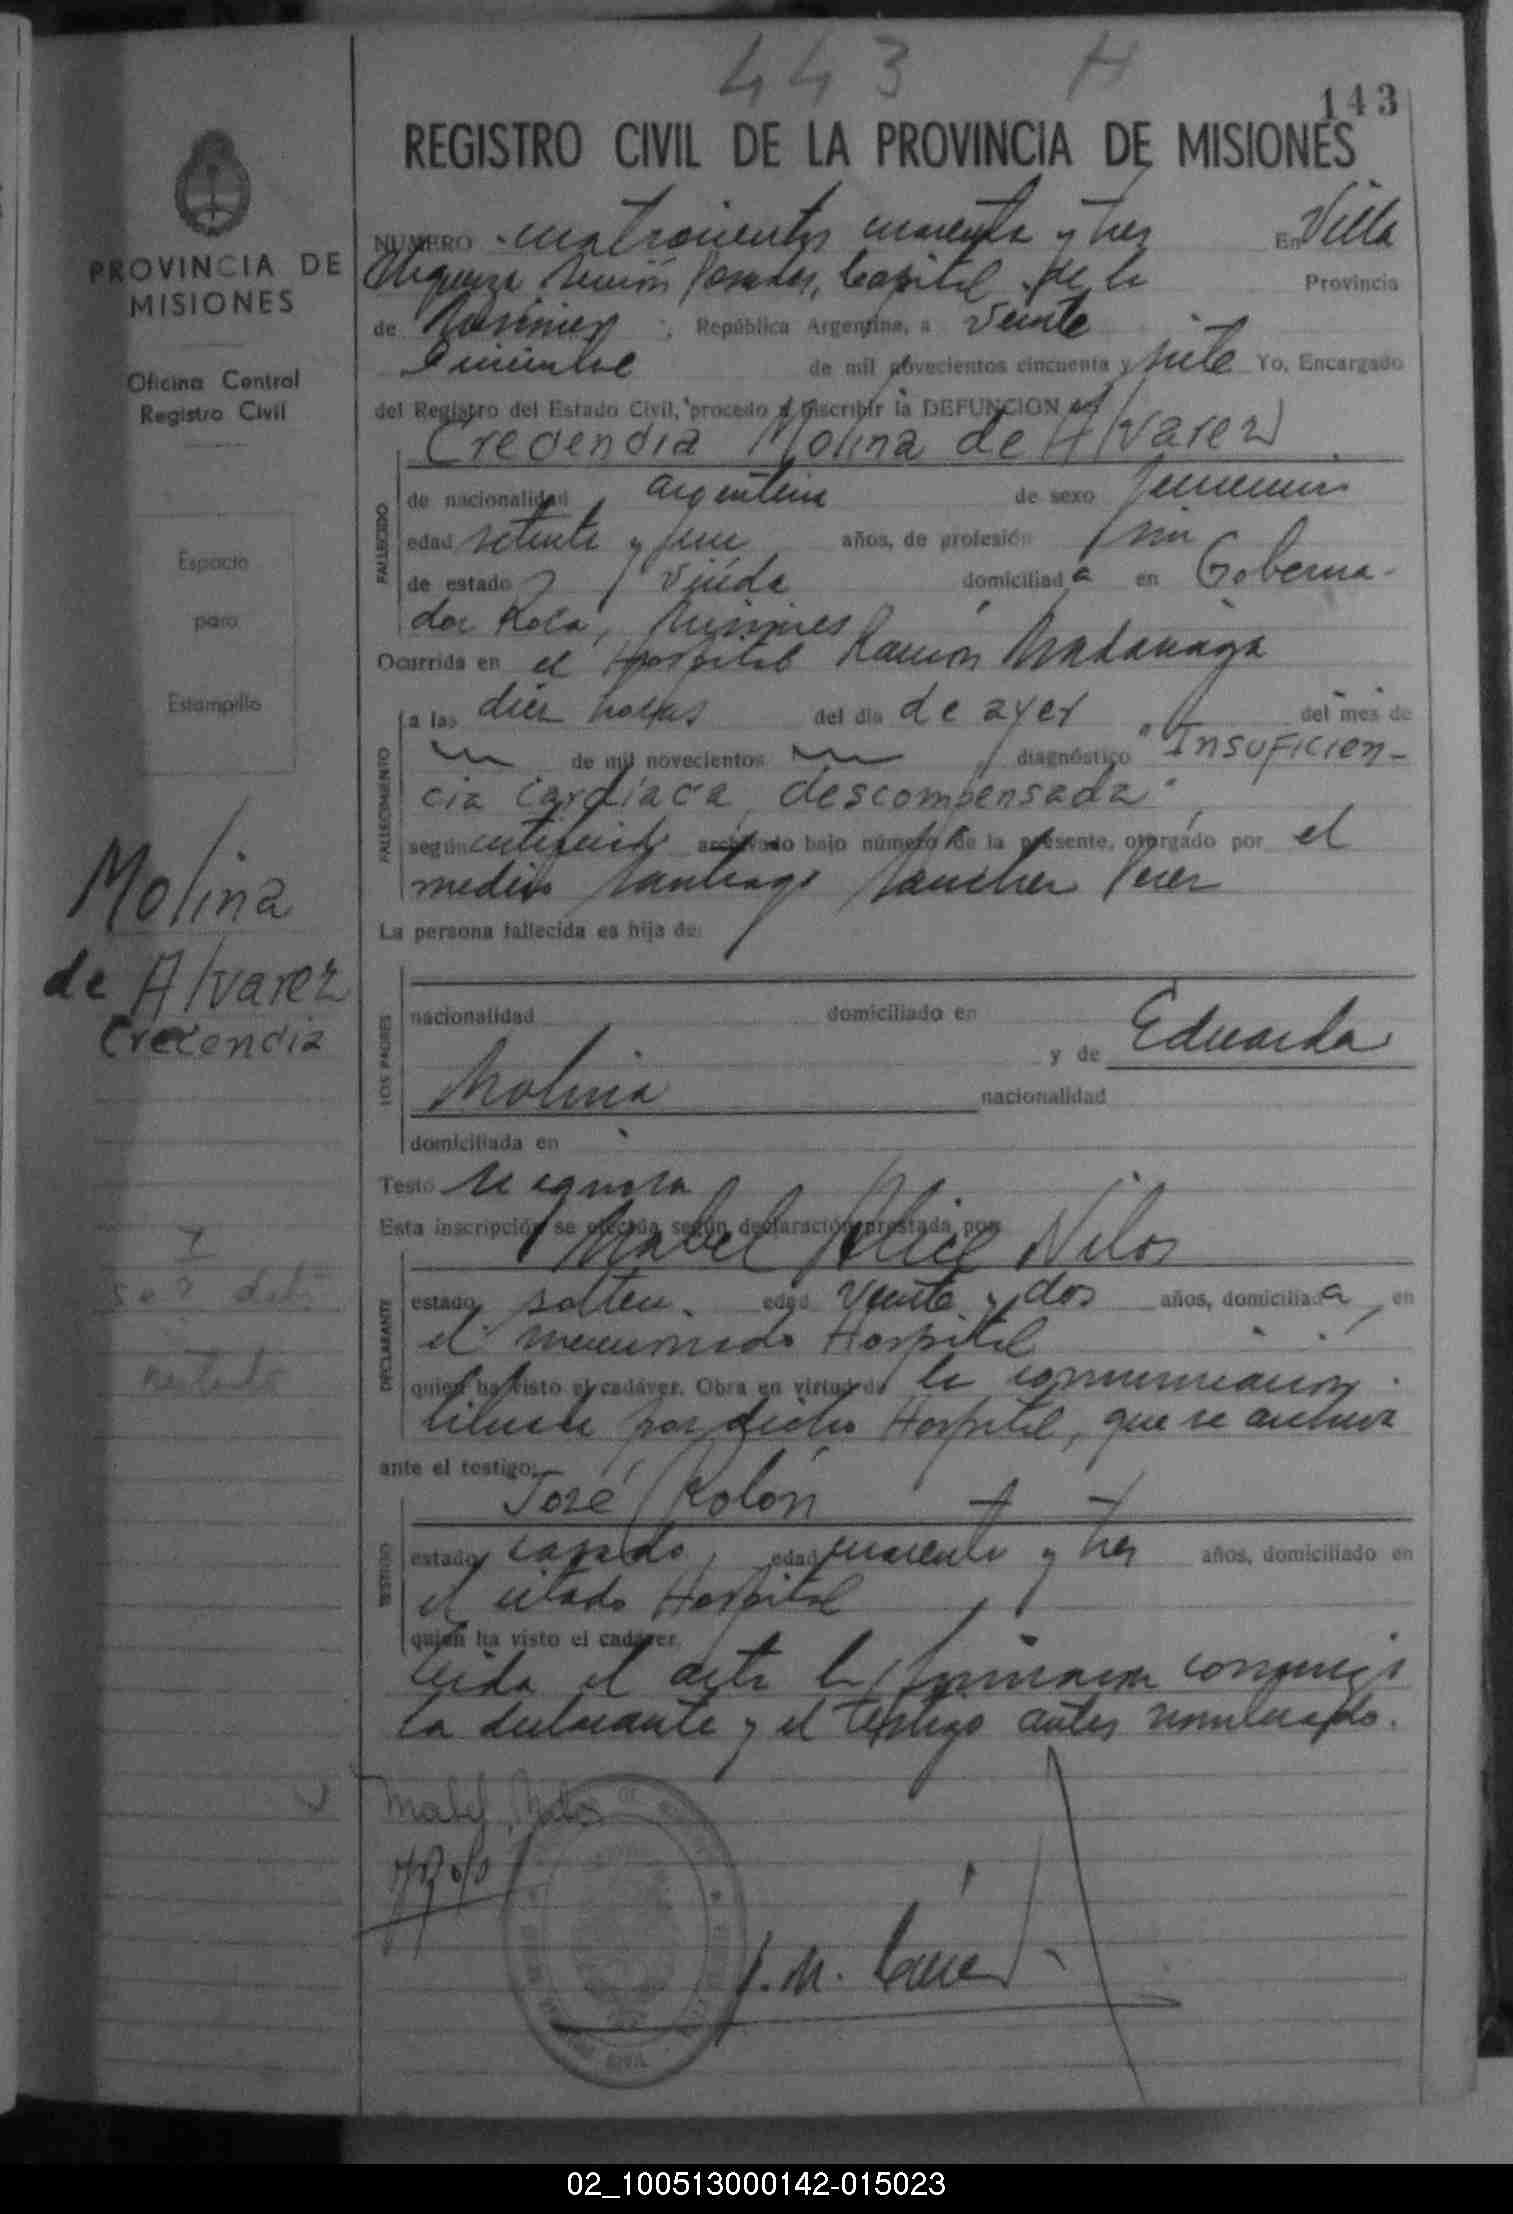 443 H
143
REGISTRO CIVIL DE LA PROVINCIA DE MISIONES
PROVINCIA DE
MISIONES
Oficina Central
Registro Civil
Espacio
para
Estampilla
Molina
de Alvarez
Credencia
NUMERO cuatrocientos cuarenta y tres En Villa
Sección Posadas, Capital de la Provincia
de Misiones, República Argentina, a veinte
Diciembre de mil novecientos cincuenta y siete Yo, Encargado
del Registro del Estado Civil, procedo a inscribir la DEFUNCION de
Credencia Molina de Alvarez
FALLECIDO
de nacionalidad argentina de sexo femenino
edad setenta y años, de profesión sin
de estado viuda domiciliada en Goberna-
dor Roca, Misiones
Ocurrida en el Hospital Ramón Madariaga
FALLECIMIENTO
a las diez horas del dia de ayer del mes de
de mil novecientos diagnóstico "Insuficien-
cia cardíaca descompensada"
según certificado archivado bajo número de la presente, otorgado por el
medico Santiago Sanchez Perez
La persona fallecida es hija de:
LOS PADRES
nacionalidad domiciliado en
y de Eduarda
Molina nacionalidad
domiciliada en
Testó se ignora
Esta inscripción se efectúa, según declaración prestada por:
Mabel Alice
DECLARANTE
estado soltera edad veinte y dos años, domiciliada en
el mencionado Hospital
quien ha visto el cadáver. Obra en virtud de la comunicación
librada por dicho Hospital, que se archiva
ante el testigo:
José Rolón
TESTIGO
estado casado, edad cuarenta y tres años, domiciliado en
el citado Hospital
quien ha visto el cadáver.
Leida el acta la firmaron conmigo
la declarante y el testigo antes nombrado.
02_100513000142-015023